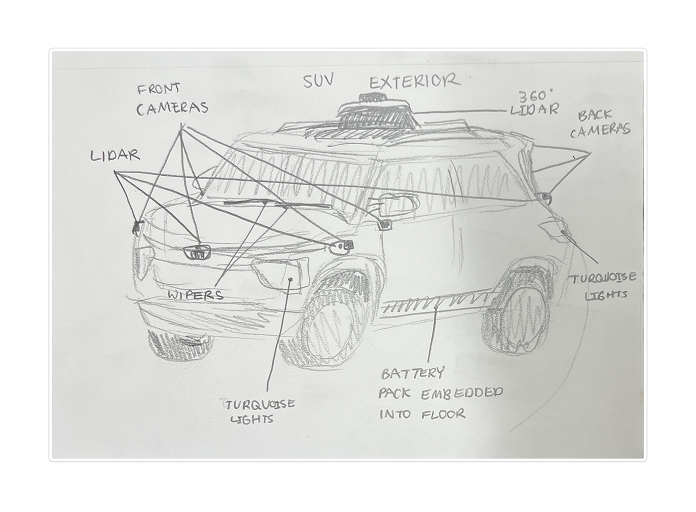 SUV EXTERIOR
FRONT
CAMERAS
360°
LIDAR
BACK
CAMERAS
LIDAR
WIPERS
TURQUOISE
LIGHTS
TURQUOISE
LIGHTS
BATTERY
PACK EMBEDDED
INTO FLOOR